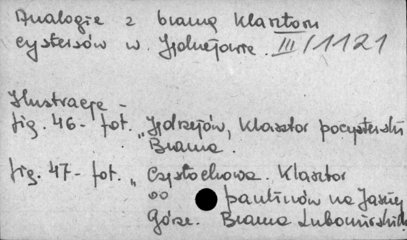 Analogie z bramą klasztoru
cystersów w Jędrzejowie. III/1121
Ilustracje -
fig. 46 - fot. „Jędrzejów, Klasztor pocysterski
Brama.
fig. 47 - fot. „ Częstochowa. Klasztor
oo paulinów na Jasnej
Górze. Brama Lubomirskich